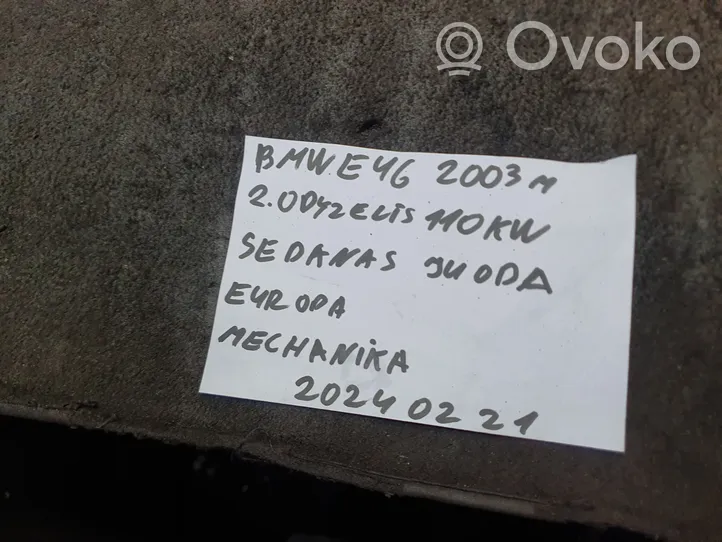 Ovoko
BMW E46 2003 m
2.0 DYZELIS 110KW
SEDANAS JUODA
EUROPA
MECHANIKA
2024 02 21